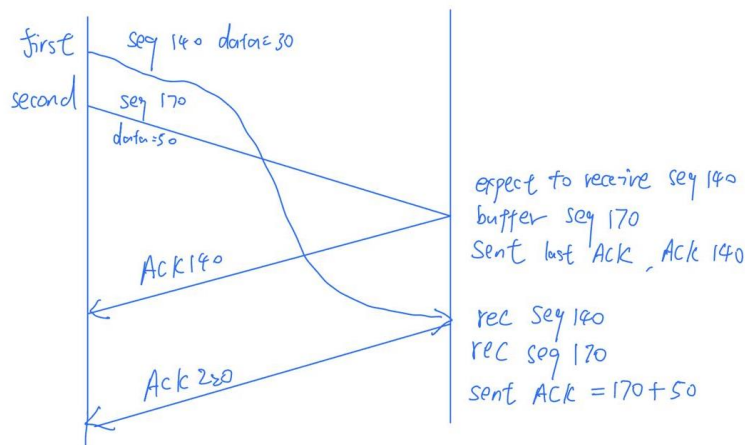 first
seq 140 data=30
second
seq 170
data=50
expect to receive seq 140
buffer seq 170
Sent last ACK, ACK 140
ACK 140
rec seq 140
rec seq 170
sent ACK = 170+50
ACK 220